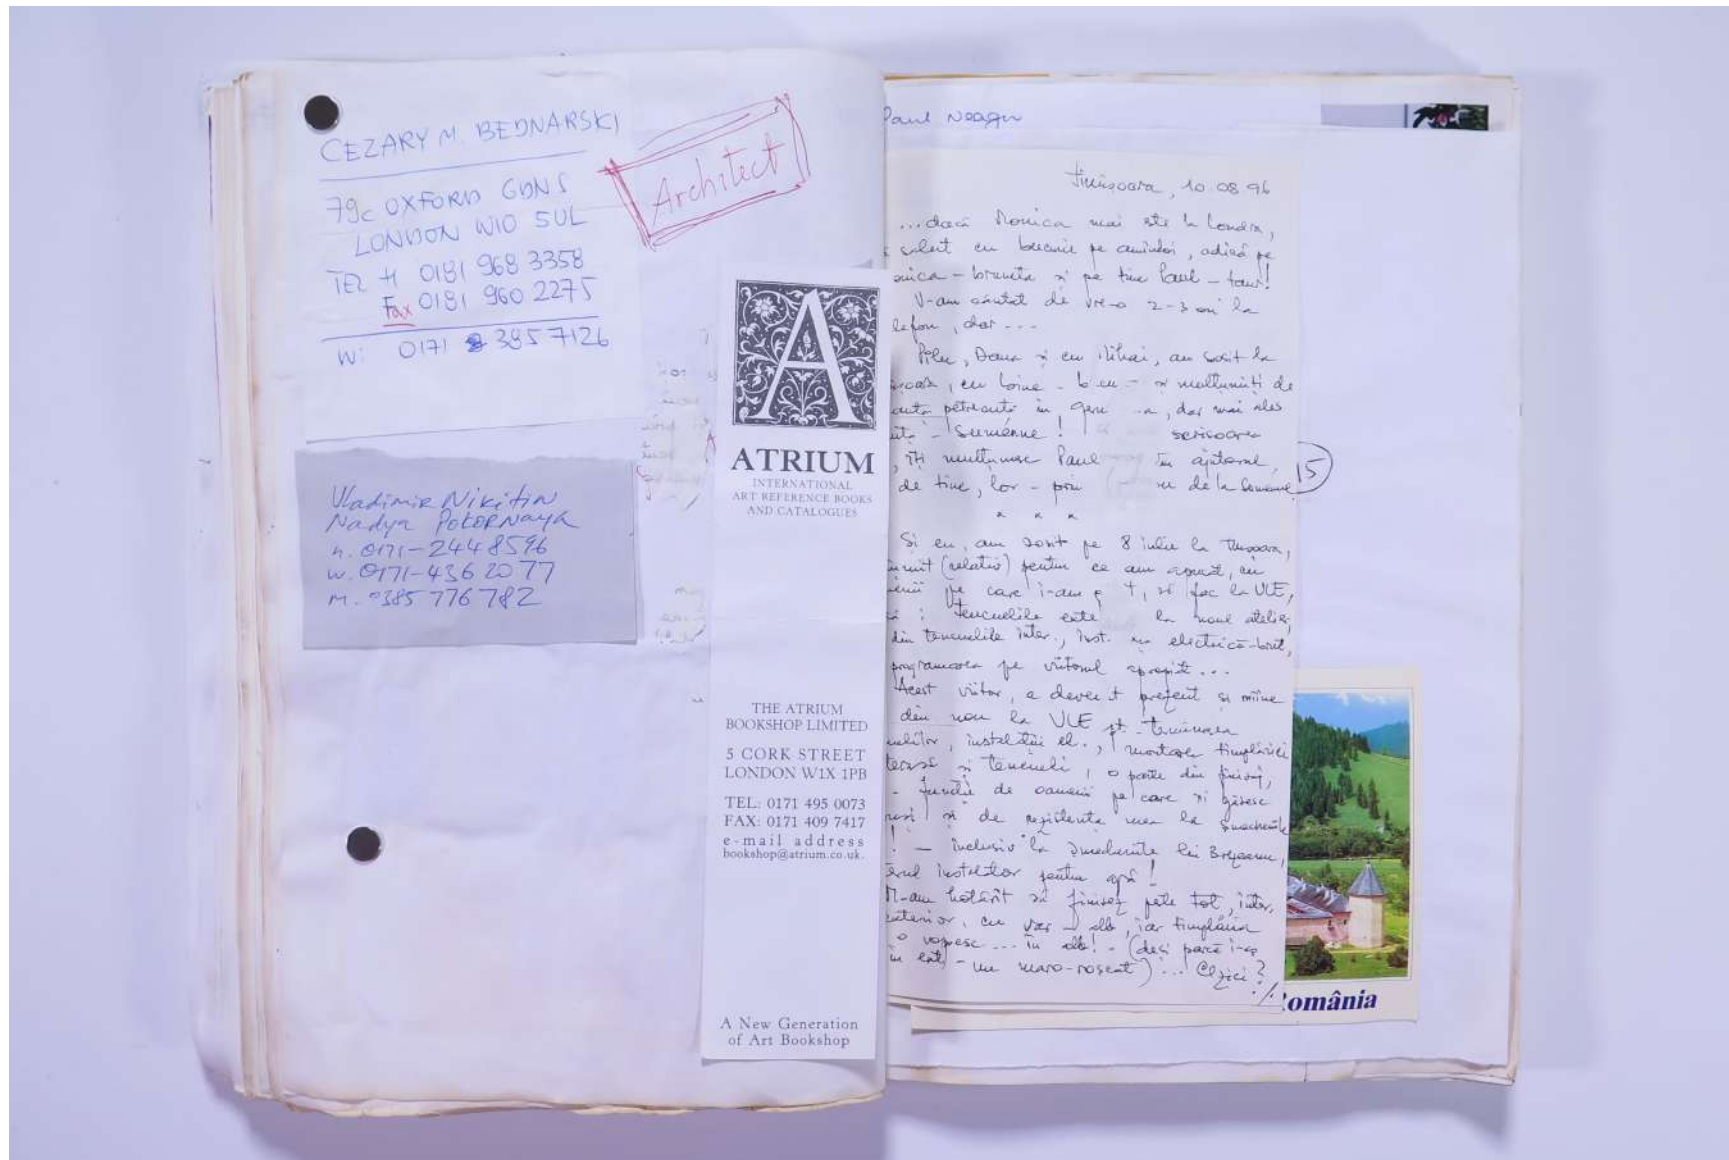 CEZARY M. BEDNARSKI
79c OXFORD GDNS
LONDON W10 5UL
TEL H 0181 968 3358
Fax 0181 960 2275
W: 0171 385 7126
Architect
Vladimir Nikitin
Nadya Pokornaya
h. 0171-244 8596
w. 0171-436 2077
m. 0385 776 782
A
ATRIUM
INTERNATIONAL
ART REFERENCE BOOKS
AND CATALOGUES
THE ATRIUM
BOOKSHOP LIMITED
5 CORK STREET
LONDON W1X 1PB
TEL: 0171 495 0073
FAX: 0171 409 7417
e-mail address
bookshop@atrium.co.uk.
A New Generation
of Art Bookshop
Paul Neagu
Timișoara, 10 08 96
...dacă Monica mai este la Londra,
salut cu bucurie pe amîndoi, adică pe
onica - bruneta și pe tine Paul -
V-am căutat de vre-o 2-3 ori la
lefon, dar ...
Pilu, Dana și cu Mihai, au sosit la
cu bine - și mulțumiți de
petrecută în dar mai ales
scrisoarea
, îți mulțumesc Paul ajutorul,
de tine, lor - prin de la
15
x x x
Și eu, am sosit pe 8 iulie la Timișoara,
(relativ) pentru ce am apucat, cu
pe care i-am să fac la VLE,
: tencuelile la noul atelier,
din tencuelile inter., inst. electrică-
programarea pe viitorul apropiat ...
Acest viitor, a devenit prezent și mîine
din nou la VLE pt. terminarea
, instalației el., montarea tîmplăriei
și tencueli, o parte din
- funcție de oamenii pe care îi găsesc
și de rezistența mea la
! - inclusiv la
instalator pentru apă!
M-am hotărît să finisez tot, inter.
exterior, cu var alb, iar tîmplăria
o vopsesc ... în alb! - (deși parcă i-aș
- un maro-roșcat) ... Ce zici?
./.
omânia